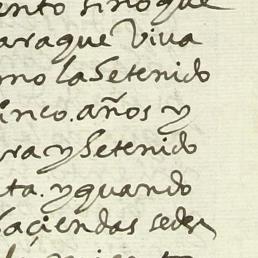 ento sino que
araque Viva
mo la Setenido
inco. años y
ra y Setenido
ta. y quando
haciendas sedex